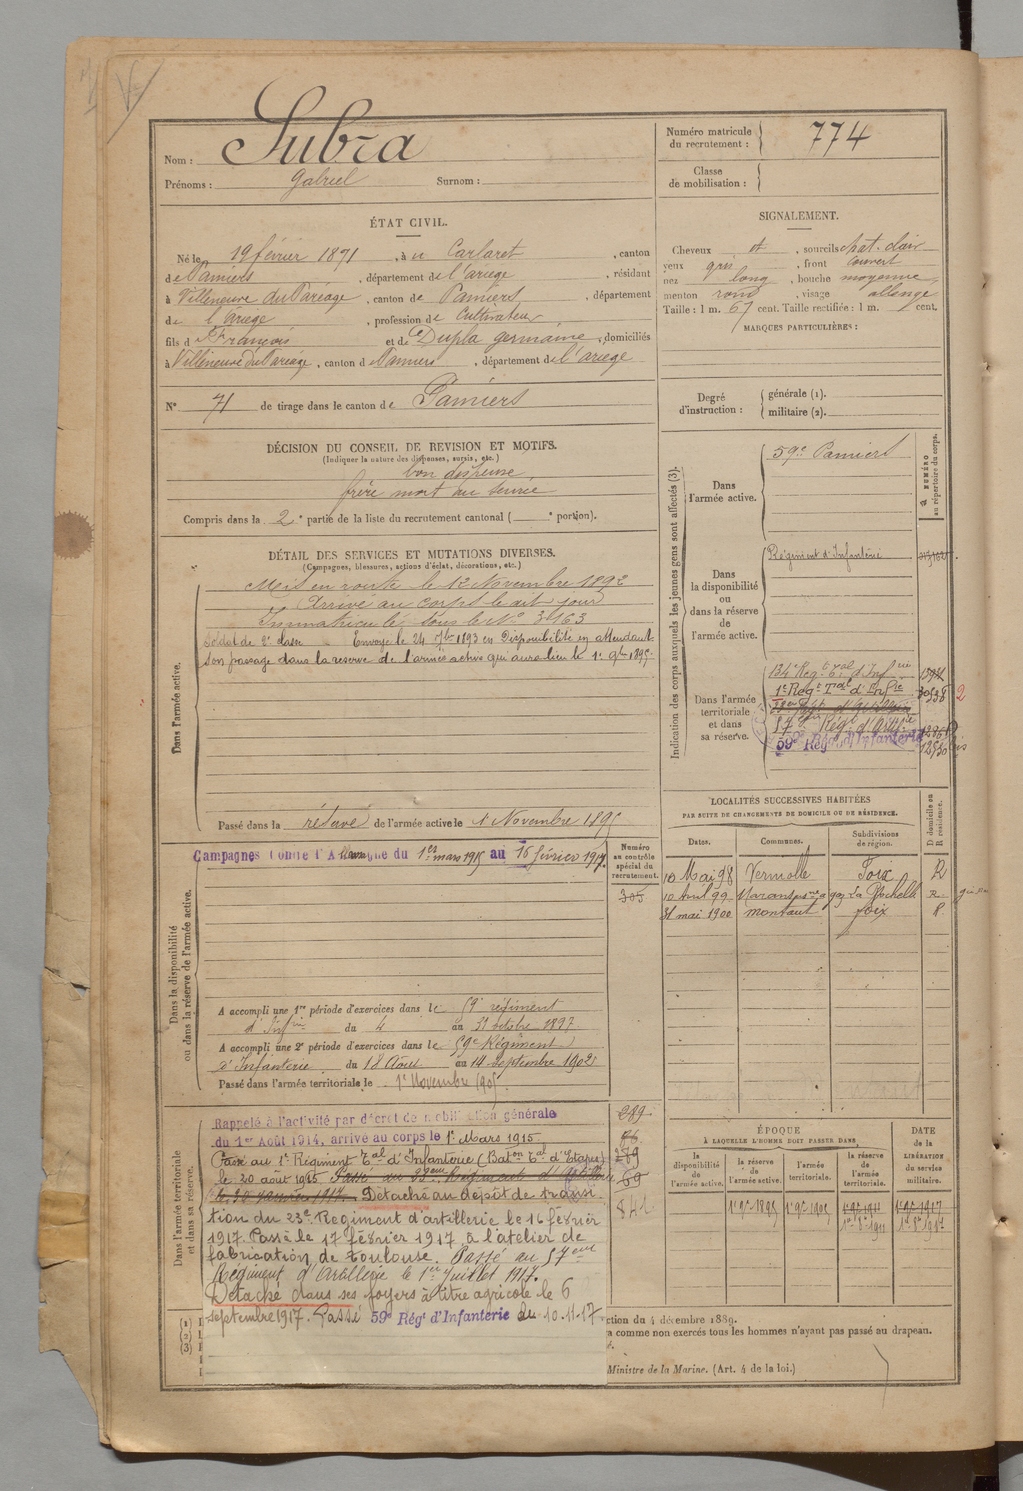 Nom : Subra
Prénoms : Gabriel Surnom :
ÉTAT CIVIL.
Né le 19 février 1871, à u Carlaret, canton
de Pamiers, département de l'ariège, résidant
à Villeneuve du Paréage, canton de Pamiers, département
de l'ariège, profession de Cultivateur
fils de François et de Dupla germaine, domiciliés
à Villeneuve du Paréage, canton d Pamiers, département de l'ariège
N° 71 de tirage dans le canton de Pamiers
DÉCISION DU CONSEIL DE REVISION ET MOTIFS.
(Indiquer la nature des dispenses, sursis, etc.)
bon dispensé
frère mort au service
Compris dans la 2e partie de la liste du recrutement cantonal ( e portion).
DÉTAIL DES SERVICES ET MUTATIONS DIVERSES.
(Campagnes, blessures, actions d'éclat, décorations, etc.)
Dans l'armée active.
Mis en route le 12 Novembre 1892
Arrivé au corps le dit jour
Immatriculé sous le N° 3163
Soldat de 2e classe Envoyé le 24 7bre 1893 en Disponibilité en attendant
son passage dans la réserve de l'armée active qui aura lieu le 1er 9bre 1895.
Passé dans la réserve de l'armée active le 1 Novembre 1895
Dans la disponibilité
ou dans la réserve de l'armée active.
Campagnes Contre l'Allemagne du 1er mars 1915 au 16 février 1917.
A accompli une 1re période d'exercices dans le 59e régiment
d'Infrie du 4 au 31 octobre 1897
A accompli une 2e période d'exercices dans le 59e Régiment
d'Infanterie du 18 Août au 14 septembre 1902
Passé dans l'armée territoriale le 1er Novembre 1905
Numéro
au contrôle
spécial du
recrutement.
305
Dans l'armée territoriale
et dans sa réserve.
Rappelé à l'activité par décret de mobilisation générale
du 1er Août 1914, arrivé au corps le 1er Mars 1915.
Passé au 1er Régiment Tal d'Infanterie (Baton Tal d'Etapes)
le 20 août 1915 Passé au 23eme Régiment d'Artillerie
le 20 janvier 1917. Détaché au dépôt de transi
tion du 23e Régiment d'artillerie le 16 février
1917. Passé le 17 février 1917 à l'atelier de
fabrication de Toulouse. Passé au 57eme
Régiment d'Artillerie le 1er Juillet 1917.
Détaché dans ses foyers à titre agricole le 6
septembre 1917. Passé 59e Régt d'Infanterie le 10.11.17
289
69
842
(1)
(2)
(3)
ction du 4 décembre 1889.
a comme non exercés tous les hommes n'ayant pas passé au drapeau.
Ministre de la Marine. (Art. 4 de la loi.)
Numéro matricule
du recrutement : 774
Classe
de mobilisation :
SIGNALEMENT.
Cheveux et, sourcils chat. clair
yeux gris, front couvert
nez long, bouche moyenne
menton rond, visage allongé
Taille : 1 m. 67 cent. Taille rectifiée : 1 m. cent.
MARQUES PARTICULIÈRES :
Degré
d'instruction :
générale (1).
militaire (2).
Indication des corps auxquels les jeunes gens sont affectés (3).
NUMÉRO
au répertoire du corps.
Dans
l'armée active.
59e Pamiers
Dans
la disponibilité
ou
dans la réserve
de
l'armée active.
Régiment d'Infanterie
Dans l'armée
territoriale
et dans
sa réserve.
134e Régt Tal d'Infrie
1er Régt Tal d'Infie 2
23eme Régt d'Artillerie
57e Régt d'Artie
59e Régt d'Infanterie
LOCALITÉS SUCCESSIVES HABITÉES
PAR SUITE DE CHANGEMENTS DE DOMICILE OU DE RÉSIDENCE.
Dates. Communes. Subdivisions
de région.
D domicile ou
R résidence.
10 Mai 98 Vernolle Foix R
10 Avril 99 Marans La Rochelle R.
31 mai 1900 montaut foix R.
ÉPOQUE
À LAQUELLE L'HOMME DOIT PASSER DANS
DATE
de la
LIBÉRATION
du service
militaire.
la
disponibilité
de
l'armée active.
la réserve
de
l'armée active.
l'armée
territoriale.
la réserve
de
l'armée
territoriale.
1er 9bre 1895 1er 9bre 1905 1er 9bre 1911 1er 9bre 1917